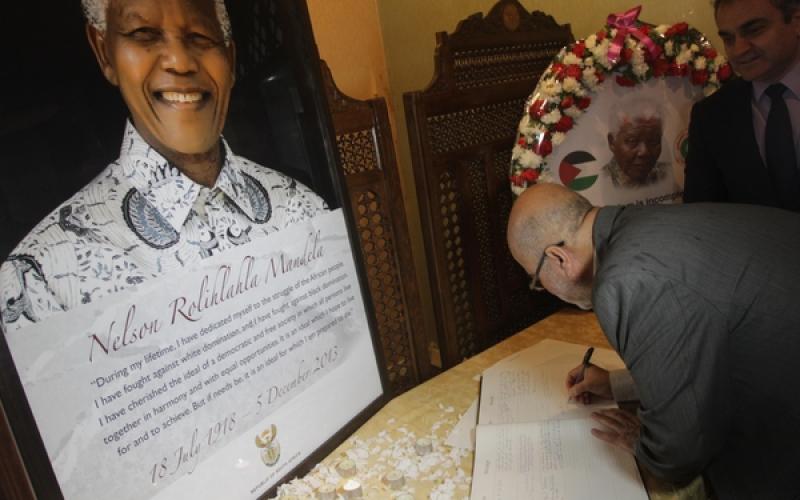 Nelson Rolihlahla Mandela
"During my lifetime, I have dedicated myself to the struggle of the African people.
I have fought against white domination, and I have fought against black domination.
I have cherished the ideal of a democratic and free society in which all persons live
together in harmony and with equal opportunities. It is an ideal which I hope to live
for and to achieve. But if needs be, it is an ideal for which I am prepared to die"
18 July 1918 – 5 December 2013
REPUBLIC OF SOUTH AFRICA